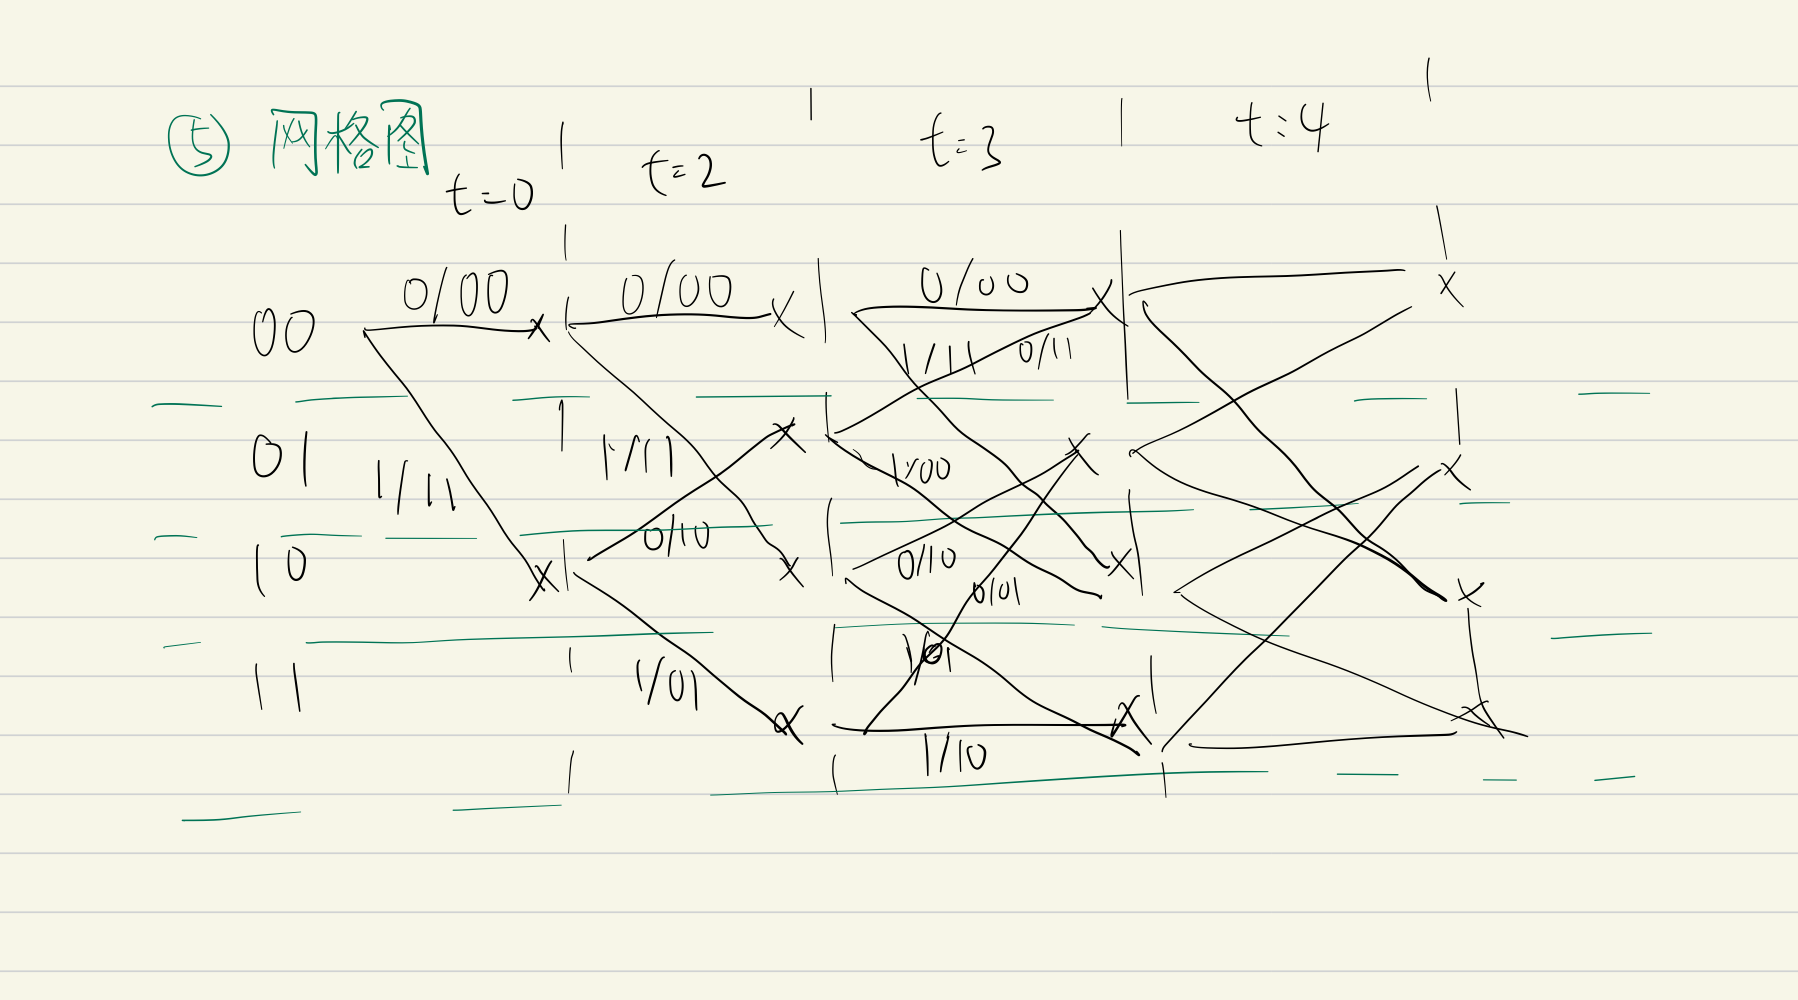 ⑤ 网格图
t=0 t=2 t=3 t=4
00 0/00 0/00 0/00
1/11 0/11
01 1/11 1/11 1/00
10 0/10 0/10 0/01
11 1/01 1/01
1/10